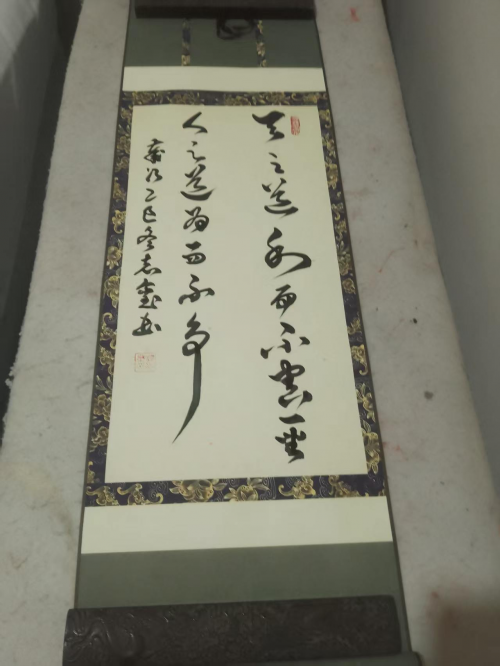 天之道利而不害聖
人之道為而不爭
歲次乙巳冬志書